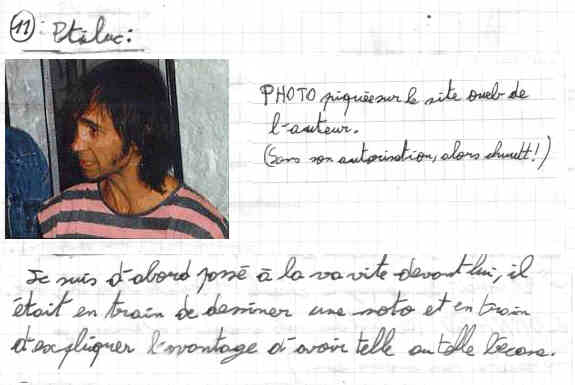 11 : Ptiluc :
PHOTO piquée sur le site oueb de
l'auteur.
(Sans son autorisation, alors chuutt !)
Je suis d'abord passé à la va vite devant lui, il
était en train de dessiner une moto et en train
d'expliquer l'avantage d'avoir telle ou telle bécane.